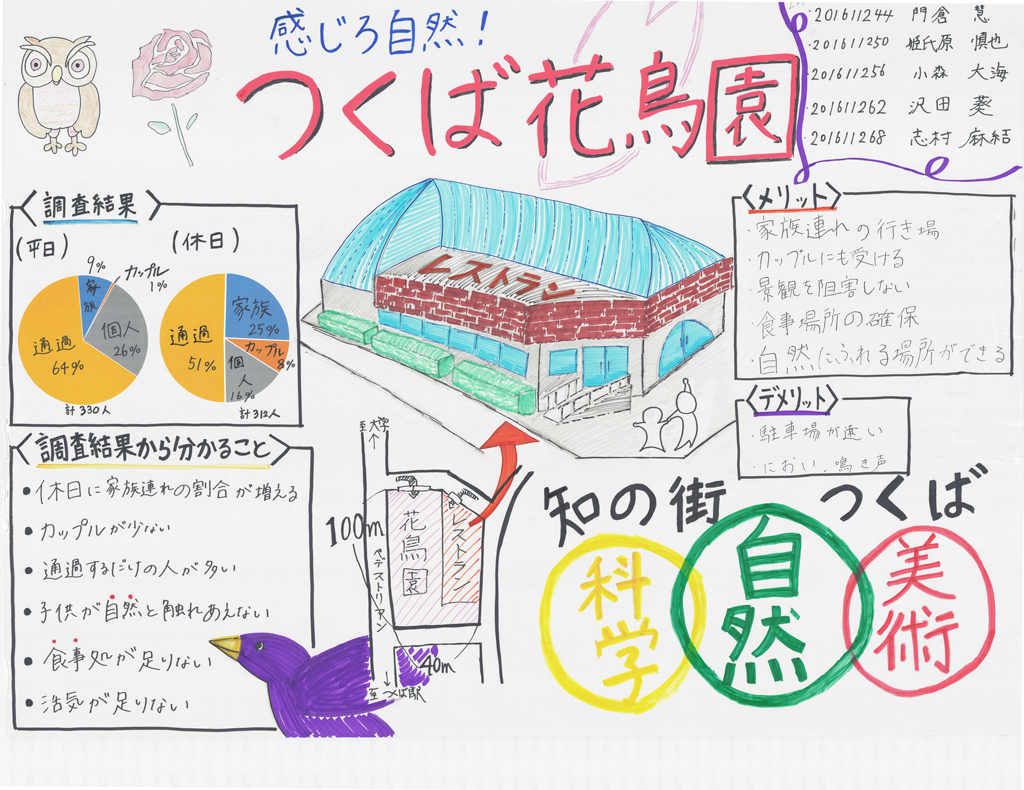 感じろ自然!
つくば花鳥園
・201611244 門倉 慧
・201611250 姫氏原 慎也
・201611256 小森 大海
・201611262 沢田 葵
・201611268 志村 麻結
〈調査結果〉
(平日)
(休日)
9%
家族
カップル
1%
個人
26%
通過
64%
計330人
家族
25%
カップル
8%
個人
16%
通過
51%
計312人
〈調査結果から分かること〉
・休日に家族連れの割合が増える
・カップルが少ない
・通過するだけの人が多い
・子供が自然と触れあえない
・食事処が足りない
・活気が足りない
レストラン
〈メリット〉
・家族連れの行き場
・カップルにも受ける
・景観を阻害しない
・食事場所の確保
・自然にふれる場所ができる
〈デメリット〉
・駐車場が遠い
・におい、鳴き声
至大学
↑
100m
花鳥園
レストラン
ペデストリアン
40m
↓
至つくば駅
知の街 つくば
科学
自然
美術